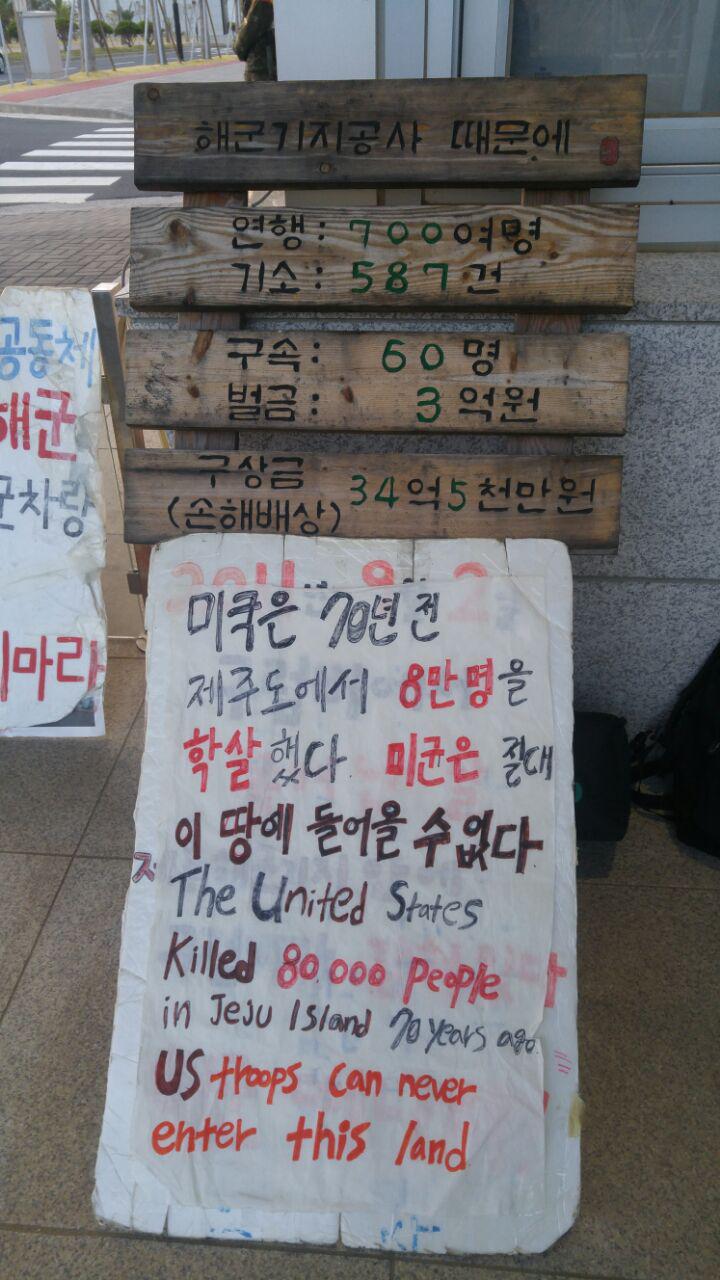 해군기지공사 때문에
연행: 700여명
기소: 587건
구속: 60명
벌금: 3억원
구상금
(손해배상) 34억5천만원
공동체
해군
군차량
지마라
미국은 70년 전
제주도에서 8만명을
학살했다 미군은 절대
이 땅에 들어올 수 없다
The United States
Killed 80.000 people
in Jeju Island 70 years ago.
US troops can never
enter this land